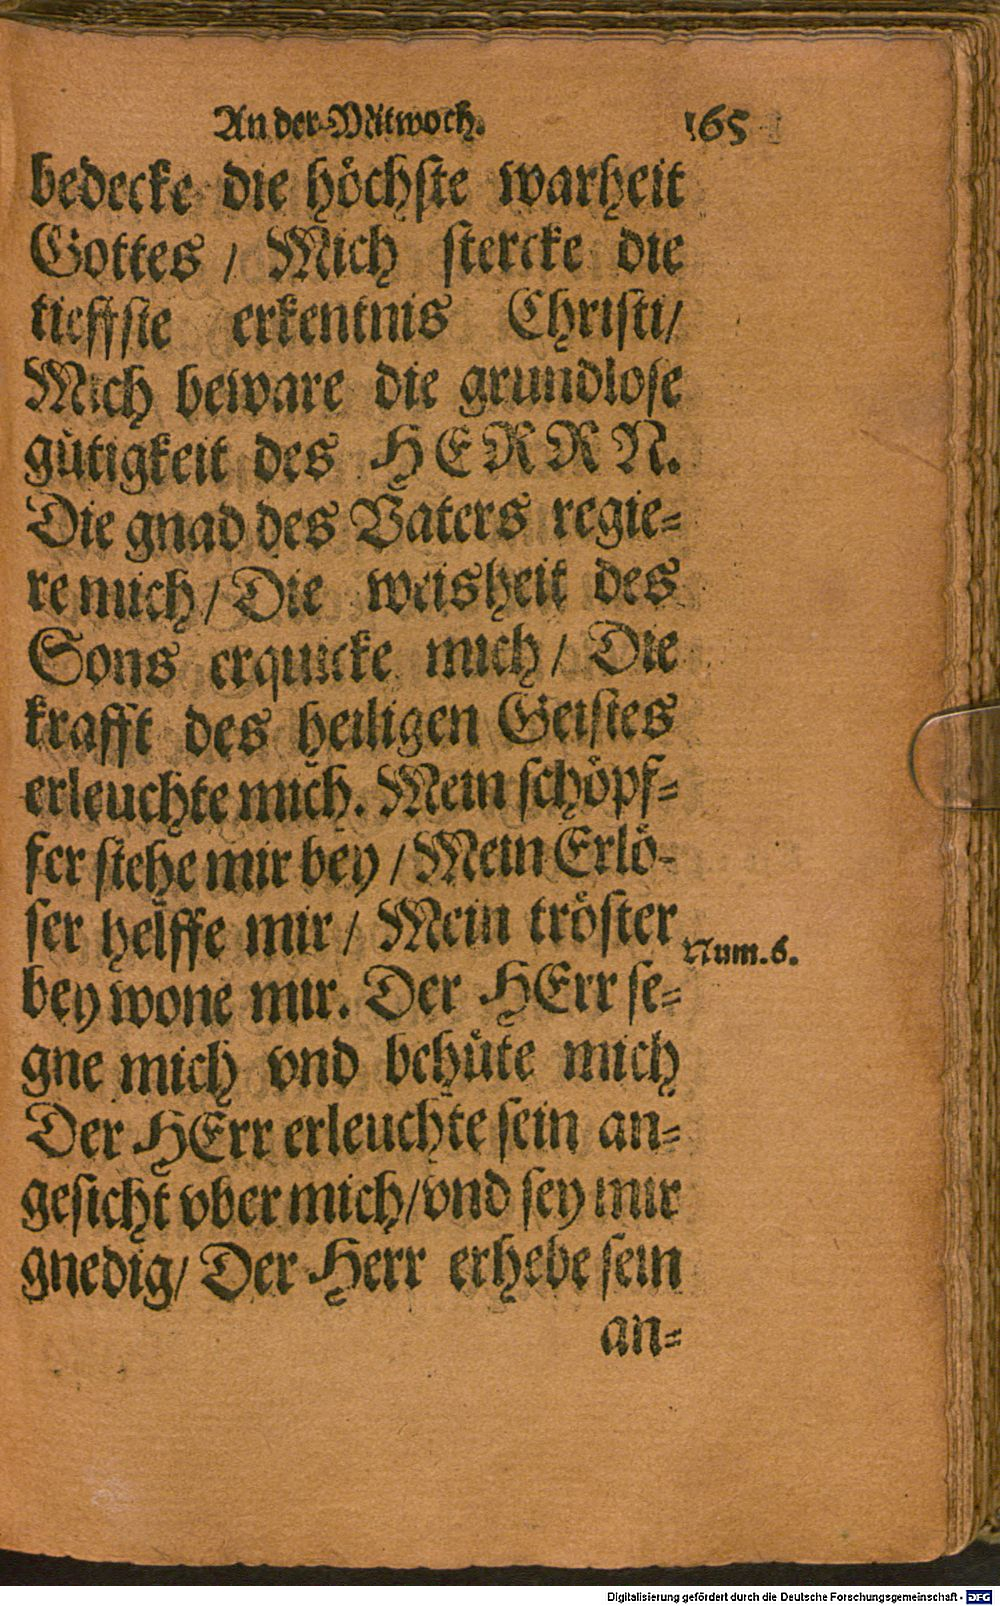 An der Mitwoch. 165
bedecke die höchste warheit
Gottes / Mich stercke die
tieffste erkentnis Christi/
Mich beware die grundlose
gütigkeit des HERRN.
Die gnad des Vaters regie=
re mich / Die weisheit des
Sons erquicke mich / Die
krafft des heiligen Geistes
erleuchte mich. Mein schöpf=
fer stehe mir bey / Mein Erlö=
ser helffe mir / Mein tröster
Num. 6.
bey wone mir. Der HErr se=
gne mich vnd behüte mich
Der HErr erleuchte sein an=
gesicht vber mich/vnd sey mir
gnedig/ Der Herr erhebe sein
an=
Digitalisierung gefördert durch die Deutsche Forschungsgemeinschaft - DFG